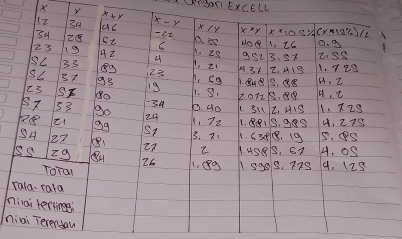 dengan EXCELL
X Y X+Y X-Y X/Y X*Y X*10.5% (X*15%)/2
12 34 46 -22 0.35 408 1.26 0.9
34 28 62 6 1.25 952 3.57 2.55
23 19 42 4 1.21 437 2.415 1.725
56 33 89 23 1.69 1.848 5.88 4.2
56 37 93 19 1.51 2.072 5.88 4.2
23 57 80 -34 0.40 1.311 2.415 1.725
57 33 90 24 1.72 1.881 5.985 4.275
78 21 99 57 3.71 1.638 8.19 5.85
54 27 81 27 2 1.458 5.67 4.05
55 29 84 26 1.89 1.595 5.775 4.125
TOTAL
rata-rata
nilai tertinggi
nilai Terendah